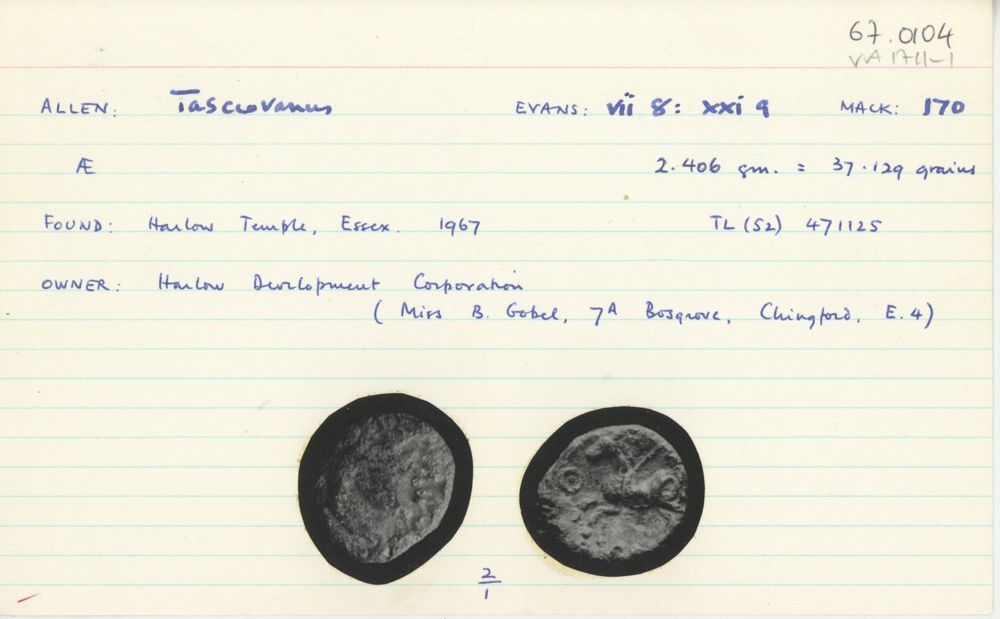 67.0104
VA 1711-1
ALLEN: Tasciovanus EVANS: vii 8: xxi 9 MACK: 170
Æ 2.406 gm. = 37.129 grains
FOUND: Harlow Temple, Essex. 1967 TL (52) 471125
OWNER: Harlow Development Corporation
(Miss B. Gobel, 7A Bosgrove, Chingford, E.4)
2
1